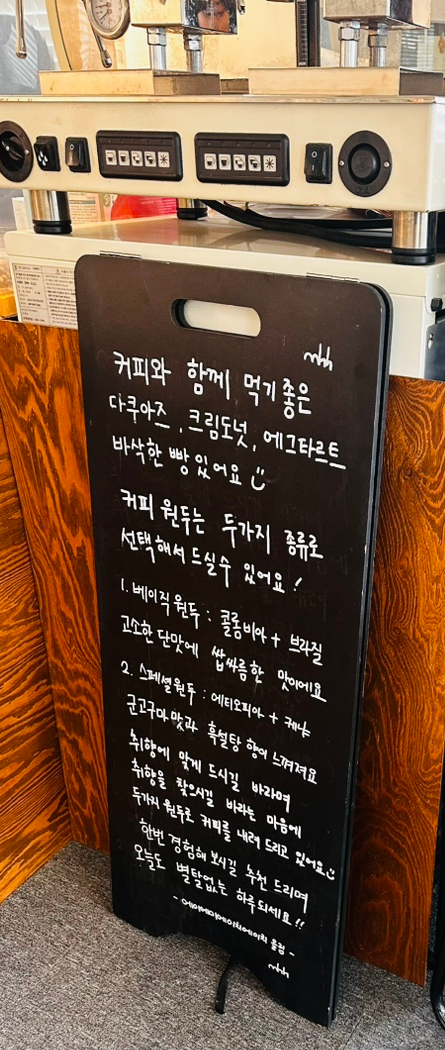 mhh
커피와 함께 먹기좋은
다쿠아즈, 크림도넛, 에그타르트
바삭한 빵 있어요
커피 원두는 두가지 종류로
선택해서 드실수 있어요!
1. 베이직원두 : 콜롬비아 + 브라질
고소한 단맛에 쌉싸름한 맛이에요
2. 스페셜원두 : 에티오피아 + 케냐
군고구마 맛과 흑설탕 향이 느껴져요
취향에 맞게 드시길 바라며
취향을 찾으시길 바라는 마음에
두가지 원두로 커피를 내려 드리고 있어요
한번 경험해 보시길 추천 드리며
오늘도 별탈없는 하루되세요!!
mhh